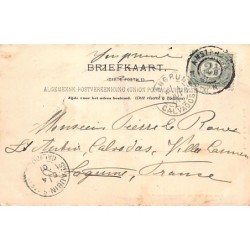 Imprimé
BRIEFKAART.
(CARTE POSTALE)
ALGEMEENE POSTVEREENIGING (UNION POSTALE UNIVERSELLE)
Zijde voor het adres bestemd. (Côté réservé à l'adresse.)
AMSTERDAM
2½
CALVADOS
Monsieur Pierre le Roux
St Aubin, Calvados, Villa Carmen
France
ST AUBIN